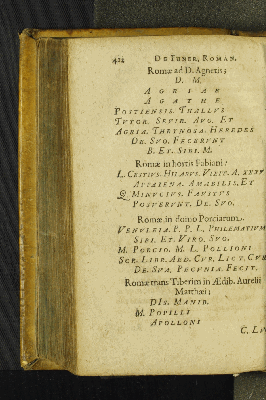 424 DE FUNER. ROMAN.
Romæ ad D. Agnetis;
D. M.
AGRIAE
AGATHE
POSTIENSIS. THALLVS
TVTOR. SEVIR. AVG. ET
AGRIA. TRYPHOSA. HEREDES
DE. SVO. FECERVNT
B. ET. SIBI. M.
Romæ in hortis Fabiani:
L. CESTIVS. HILARVS. VIXIT. A. XXXV
ATTAIENA. AMABILIS. ET
Q. MINVCIVS. FAVSTVS
POSVERVNT. DE. SVO.
Romæ, in domo Porciorum.
VENVLEIA. P. P. L. PHILEMATIVM
SIBI. ET. VIRO. SVO.
M. PORCIO. M. L. POLLIONI
SCR. LIBR. AED. CVR. LICT. CVR
DE. SVA. PECVNIA. FECIT.
Romæ trans Tiberim in Ædib. Aurelii
Matthæi;
DIS. MANIB.
M. POPILLI
APOLLONI
C. LV